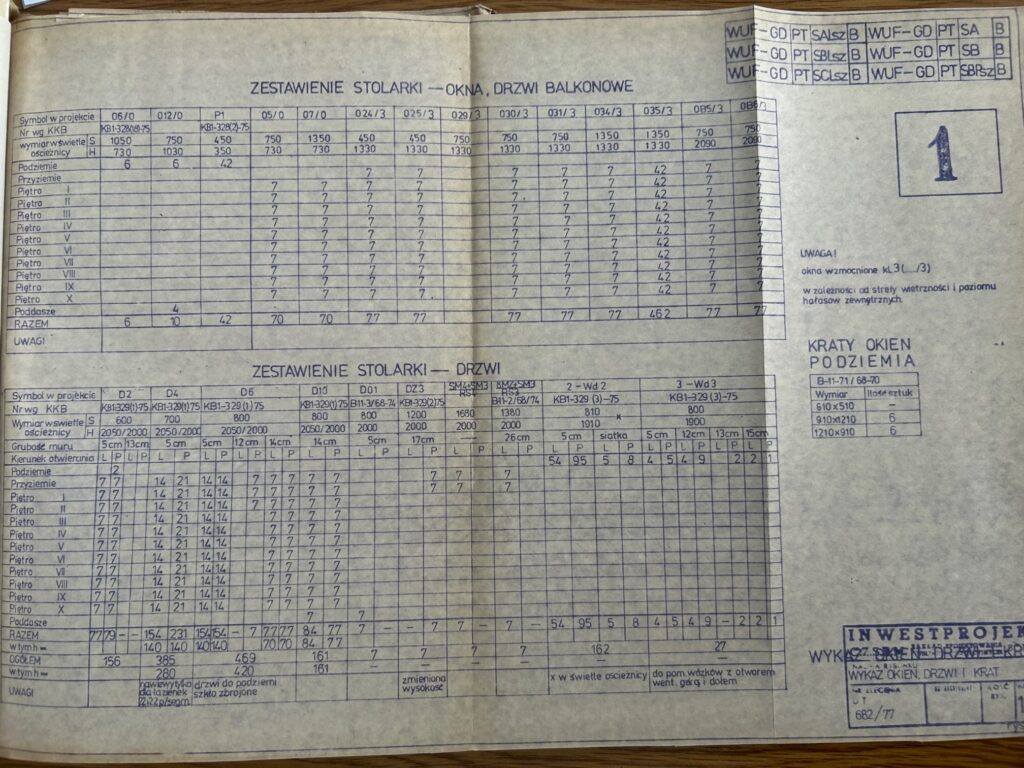 WUF-GD PT SALsz B WUF-GD PT SA B
WUF-GD PT SBLsz B WUF-GD PT SB B
WUF-GD PT SCLsz B WUF-GD PT SBPsz B
ZESTAWIENIE STOLARKI — OKNA, DRZWI BALKONOWE
Symbol w projekcie 06/0 012/0 P1 05/0 07/0 024/3 025/3 029/3 030/3 031/3 034/3 035/3 0B5/3 0B6/3
Nr wg KKB KB1-328(2)-75
wymiar w świetle ościeżnicy S 1050 750 450 750 1350 450 750 450 750 750 1350 1350 750 750
H 730 1030 350 730 730 1330 1330 1330 1330 1330 1330 1330 2090 2090
Podziemie 6 6 42
Przyziemie 7 7 7 7 7 42 7 7
Piętro I 7 7 7 7 7 7 7 42 7 7
Piętro II 7 7 7 7 7 7 7 42 7 7
Piętro III 7 7 7 7 7 7 7 42 7 7
Piętro IV 7 7 7 7 7 7 7 42 7 7
Piętro V 7 7 7 7 7 7 7 42 7 7
Piętro VI 7 7 7 7 7 7 7 42 7 7
Piętro VII 7 7 7 7 7 7 7 42 7 7
Piętro VIII 7 7 7 7 7 7 7 42 7 7
Piętro IX 7 7 7 7 7 7 7 42 7 7
Piętro X 7 7 7 7 7 7 7 42 7 7
Poddasze 4
RAZEM 6 10 42 70 70 77 77 77 77 77 462 77 77
UWAGI
1
UWAGA!
okna wzmocnione kl.3 (..../3)
w zależności od strefy wietrzności i poziomu
hałasów zewnętrznych.
KRATY OKIEN
PODZIEMIA
B-11-71/68-70
Wymiar Ilość sztuk
610x510 –
910x1210 6
1210x910 6
ZESTAWIENIE STOLARKI — DRZWI
Symbol w projekcie D2 D4 D6 D10 D01 DZ3 2-Wd2 3-Wd3
Nr wg KKB KB1-329(1)-75 KB1-329(1)75 KB1-329(1)-75 KB1-329(1)75 B11-3/68-74 KB1-329(2)-75 B11-2/68/74 KB1-329 (3)-75 KB1-329 (3)-75
Wymiar w świetle ościeżnicy S 600 700 800 800 800 1200 1680 1380 810 x 800
H 2050/2000 2050/2000 2050/2000 2050/2000 2000 2000 2000 2000 1910 1900
Grubość muru 5cm 13cm 5cm 5cm 12cm 14cm 14cm 5cm 17cm 26cm 5cm siatka 5cm 12cm 13cm 15cm
Kierunek otwierania L P L P L P L P L P L P L P L P L P
54 95 5 8 4 5 4 9 – 2 2 1
Podziemie 2
Przyziemie 7 7 14 21 14 14 7 7 7 7 7 7 7 7
Piętro I 7 7 14 21 14 14 7 7 7 7 7 7 7
Piętro II 7 7 14 21 14 14 7 7 7 7
Piętro III 7 7 14 21 14 14 7 7 7 7
Piętro IV 7 7 14 21 14 14 7 7 7 7
Piętro V 7 7 14 21 14 14 7 7 7 7
Piętro VI 7 7 14 21 14 14 7 7 7 7
Piętro VII 7 7 14 21 14 14 7 7 7 7
Piętro VIII 7 7 14 21 14 14 7 7 7 7
Piętro IX 7 7 14 21 14 14 7 7 7 7
Piętro X 7 7 14 21 14 14 7 7 7 7
Poddasze 7 7
RAZEM 77 79 – – 154 231 154 154 – 7 77 77 84 77 7 – 7 – 7 – 7 – 54 95 5 8 4 5 4 9 – 2 2 1
w tym h= 140 140 140 140 70 70 84 77
OGÓŁEM 156 385 469 161 7 7 7 7 162 27
w tym h= 280 420 161 – – – – – –
UWAGI
drzwi do podziemi
szkło zbrojone
zmieniona
wysokość
x w świetle ościeżnicy
do pom. wózków z otworem
went. górą i dołem
INWESTPROJEK
WYKAZ OKIEN, DRZWI I KRAT
682/77